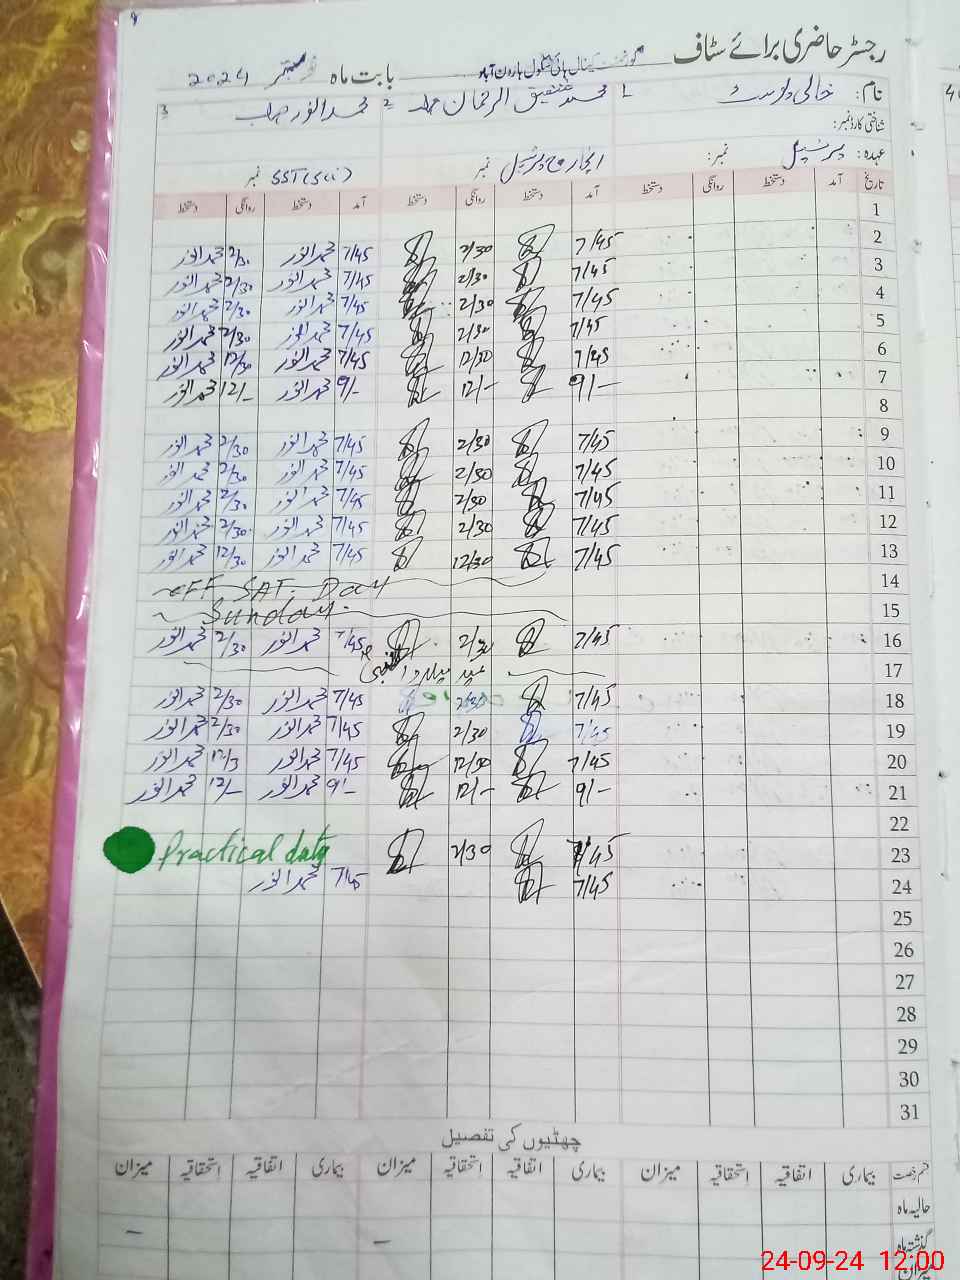 رجسٹر حاضری برائے سٹاف گورنمنٹ کینال ہائی سکول ہارون آباد بابت ماہ ستمبر 2024
نام: 1 خالی پوسٹ 2 محمد عتیق الرحمان صاحب 3 محمد انور صاحب
شناختی کارڈ نمبر:
عہدہ: پرنسپل نمبر: انچارج پرنسپل نمبر SST(Sci) نمبر
تاریخ آمد دستخط روانگی دستخط آمد دستخط روانگی دستخط آمد دستخط روانگی دستخط
1
2 7/45 2/30 7/45 محمد انور 2/30 محمد انور
3 7/45 2/30 7/45 محمد انور 2/30 محمد انور
4 7/45 2/30 7/45 محمد انور 2/30 محمد انور
5 7/45 2/30 7/45 محمد انور 2/30 محمد انور
6 7/45 12/30 7/45 محمد انور 12/30 محمد انور
7 9/- 12/- 9/- محمد انور 12/- محمد انور
8
9 7/45 2/30 7/45 محمد انور 2/30 محمد انور
10 7/45 2/30 7/45 محمد انور 2/30 محمد انور
11 7/45 2/30 7/45 محمد انور 2/30 محمد انور
12 7/45 2/30 7/45 محمد انور 2/30 محمد انور
13 7/45 12/30 7/45 محمد انور 12/30 محمد انور
14 OFF SAT. Day
15 Sunday.
16 7/45 2/30 7/45 محمد انور 2/30 محمد انور
17 عید میلاد النبیؐ
18 7/45 2/30 7/45 محمد انور 2/30 محمد انور
19 7/45 2/30 7/45 محمد انور 2/30 محمد انور
20 7/45 12/30 7/45 محمد انور 12/3 محمد انور
21 9/- 12/- 9/- محمد انور 12/- محمد انور
22
23 7/45 2/30 Practical duty
24 7/45 7/45 محمد انور
25
26
27
28
29
30
31
چھٹیوں کی تفصیل
قسم رخصت بیماری اتفاقیہ استحقاقیہ میزان بیماری اتفاقیہ استحقاقیہ میزان بیماری اتفاقیہ استحقاقیہ میزان
حالیہ ماہ
گذشتہ ماہ - -
میزان
24-09-24 12:00